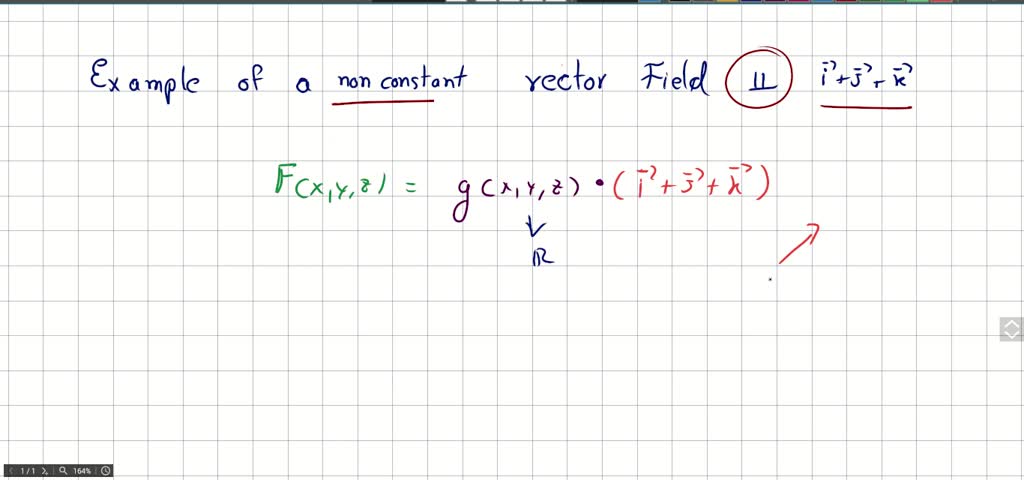 Example of a non constant vector Field ⫫ i⃗ + j⃗ + k⃗
F(x,y,z) = g(x,y,z) • (i⃗ + j⃗ + k⃗)
ℝ
1/1 164%